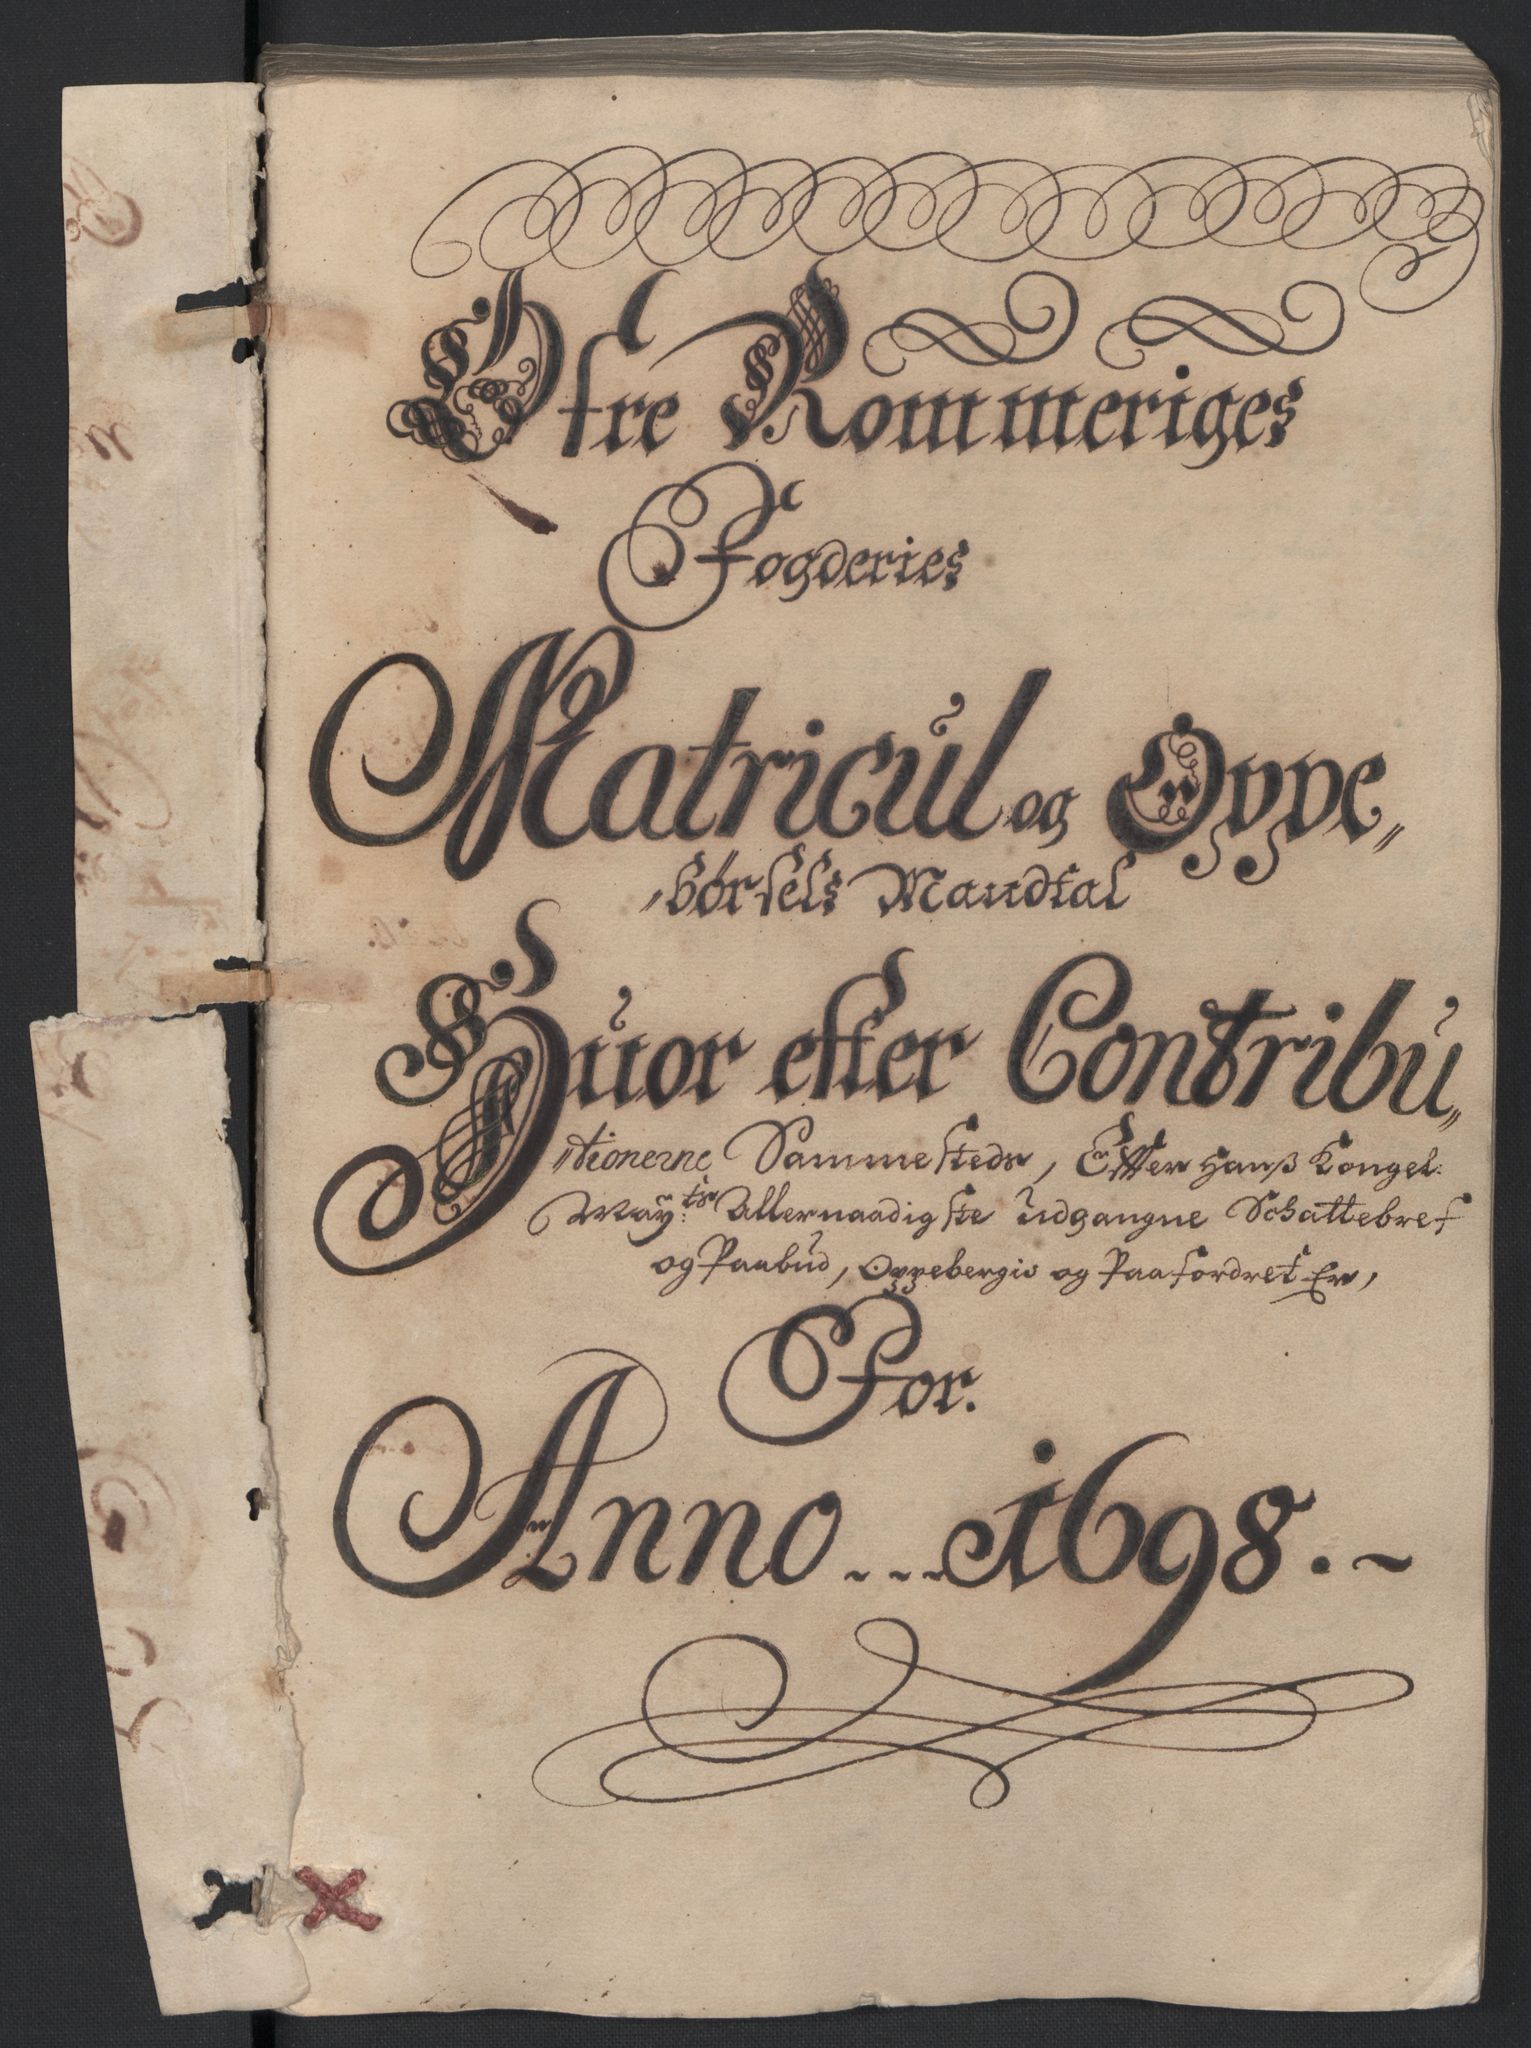 Øfre Rommeriges
Fogderies
Matricul og Oppe„
„børsels Mandtal
Huor effter Contribu„
„tionerne Sammesteds, Effter Hanß Kongel:
May:ts Allernaadigste udgangne Schattebref
og Paabud, Oppebergis og Paafordret Er,
For.
Anno... 1698.~